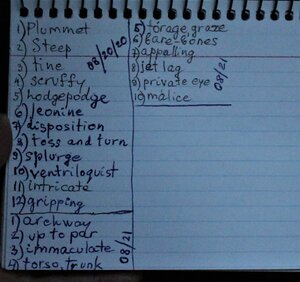 1) Plummet
2) Steep
3) tine
4) scruffy
5) hodgepodge
6) leonine
7) disposition
8) toss and turn
9) splurge
10) ventriloquist
11) intricate
12) gripping
08/20/20
1) archway
2) up to par
3) immaculate
4) torso, trunk
08/21
5) forage graze
6) bare-bones
7) appalling
8) jet lag
9) private eye
10) malice
08/21